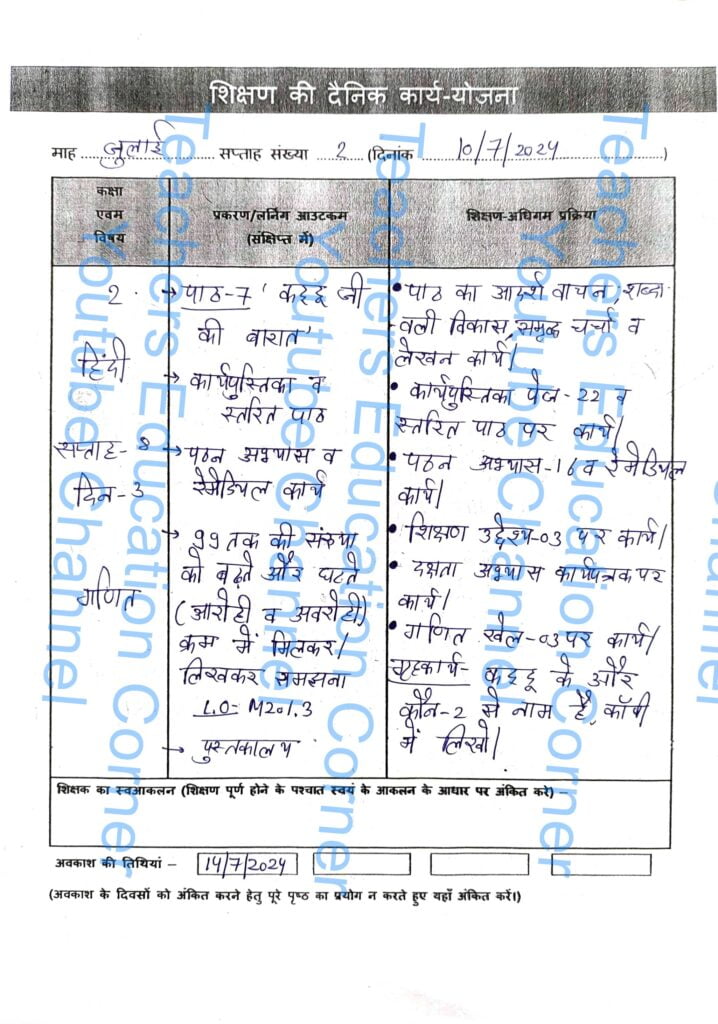 शिक्षण की दैनिक कार्य-योजना
माह जुलाई सप्ताह संख्या 2 (दिनांक 10/7/2024)
कक्षा
एवम
विषय
प्रकरण/लर्निंग आउटकम
(संक्षिप्त में)
शिक्षण-अधिगम प्रक्रिया
2
हिंदी
सप्ताह-8
दिन-3
गणित
→ पाठ-7 'कद्दू जी
की बारात'
→ कार्यपुस्तिका व
स्तरित पाठ
→ पठन अभ्यास व
रेमेडियल कार्य
→ 99 तक की संख्या
को बढ़ते और घटते
(आरोही व अवरोही)
क्रम में मिलकर/
लिखकर समझना
L.O- M201.3
→ पुस्तकालय
• पाठ का आदर्श वाचन, शब्दा-
वली विकास, समृद्ध चर्चा व
लेखन कार्य।
• कार्यपुस्तिका पेज-22 व
स्तरित पाठ पर कार्य।
• पठन अभ्यास-16 व रेमेडियल
कार्य।
• शिक्षण उद्देश्य-03 पर कार्य।
• दक्षता अभ्यास कार्यपत्रक पर
कार्य।
• गणित खेल-03 पर कार्य।
गृहकार्य- कद्दू के और
कौन-2 से नाम है, कॉपी
में लिखो।
शिक्षक का स्वआकलन (शिक्षण पूर्ण होने के पश्चात स्वयं के आकलन के आधार पर अंकित करे) –
अवकाश की तिथियां – 14/7/2024
(अवकाश के दिवसों को अंकित करने हेतु पूरे पृष्ठ का प्रयोग न करते हुए यहाँ अंकित करें।)
Teachers Education Corner
Youtube Channel
Teachers Education Corner
Youtube Channel